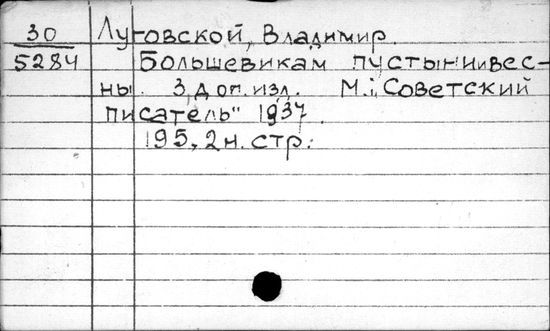 30 Луговской, Владимир.
5284 Большевикам пустыни и вес-
ны. 3 доп. изд. М., „Советский
писатель" 1937.
195, 2 н. стр.